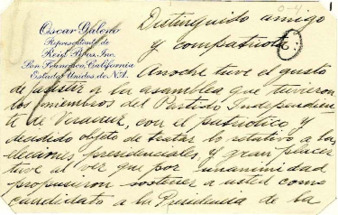 Oscar Galeno
Representante de
Reid Bros, Inc.
San Francisco, California
Estados Unidos de N.A.
Distinguido amigo
y compatriota:
Anoche tuve el gusto
de asistir a la asamblea que tuvieron
los miembros del Partido Independien
te de Veracruz, con el patriótico y
decidido objeto de tratar lo relativo a las
elecciones presidenciales y gran placer
tuve al ver que por unanimidad
propusieron sostener a usted como
candidato a la Presidencia de la